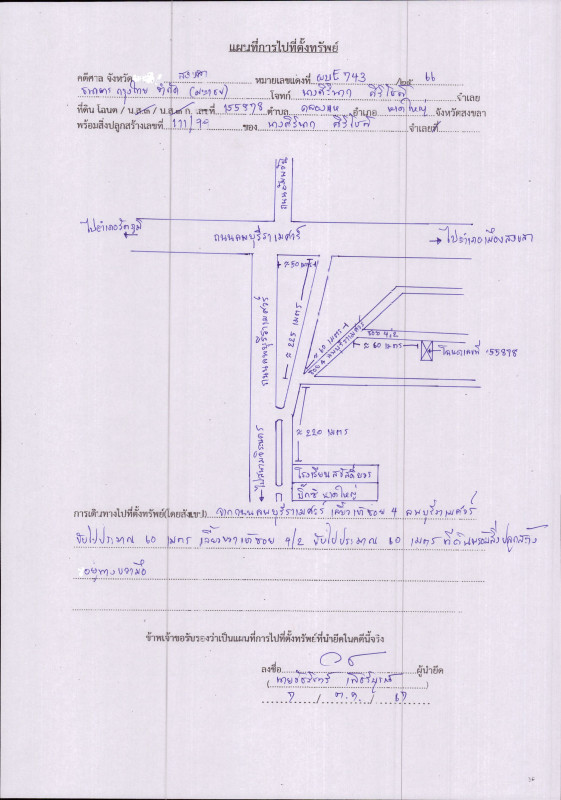 แผนที่การไปที่ตั้งทรัพย์
คดีศาล จังหวัด สงขลา หมายเลขแดงที่ ผบE743 /๒๕ 66
ธนาคาร กรุงไทย จำกัด (มหาชน) โจทก์ นางศิรินาถ ศิริโชติ จำเลย
ที่ดิน โฉนด / น.ส.๓ / น.ส.๓ ก. เลขที่ 155898 ตำบล คลองแห อำเภอ หาดใหญ่ จังหวัดสงขลา
พร้อมสิ่งปลูกสร้างเลขที่ 111/ ของ นางศิรินาถ ศิริโชติ จำเลยที่
ไปอำเภอรัตภูมิ
ถนนลพบุรีราเมศวร์
ไปอำเภอเมืองสงขลา
≈ 50 เมตร
ถนนลพบุรีราเมศวร์
≈ 225 เมตร
≈ 60 เมตร
ซอย 4 ลพบุรีราเมศวร์
ซอย 4/2
≈ 60 เมตร
โฉนดเลขที่ 155898
≈ 220 เมตร
บิ๊กซี หาดใหญ่
การเดินทางไปที่ตั้งทรัพย์(โดยสังเขป) จากถนนลพบุรีราเมศวร์ เลี้ยวเข้าซอย 4 ลพบุรีราเมศวร์
ขับไปประมาณ 60 เมตร เลี้ยวขวาเข้าซอย 4/2 ขับไปประมาณ 60 เมตร ที่ดินพร้อมสิ่งปลูกสร้าง
อยู่ทางขวามือ
ข้าพเจ้าขอรับรองว่าเป็นแผนที่การไปที่ตั้งทรัพย์ที่นำยึดในคดีนี้จริง
ลงชื่อ ผู้นำยึด
7 / ต.ค. / 67